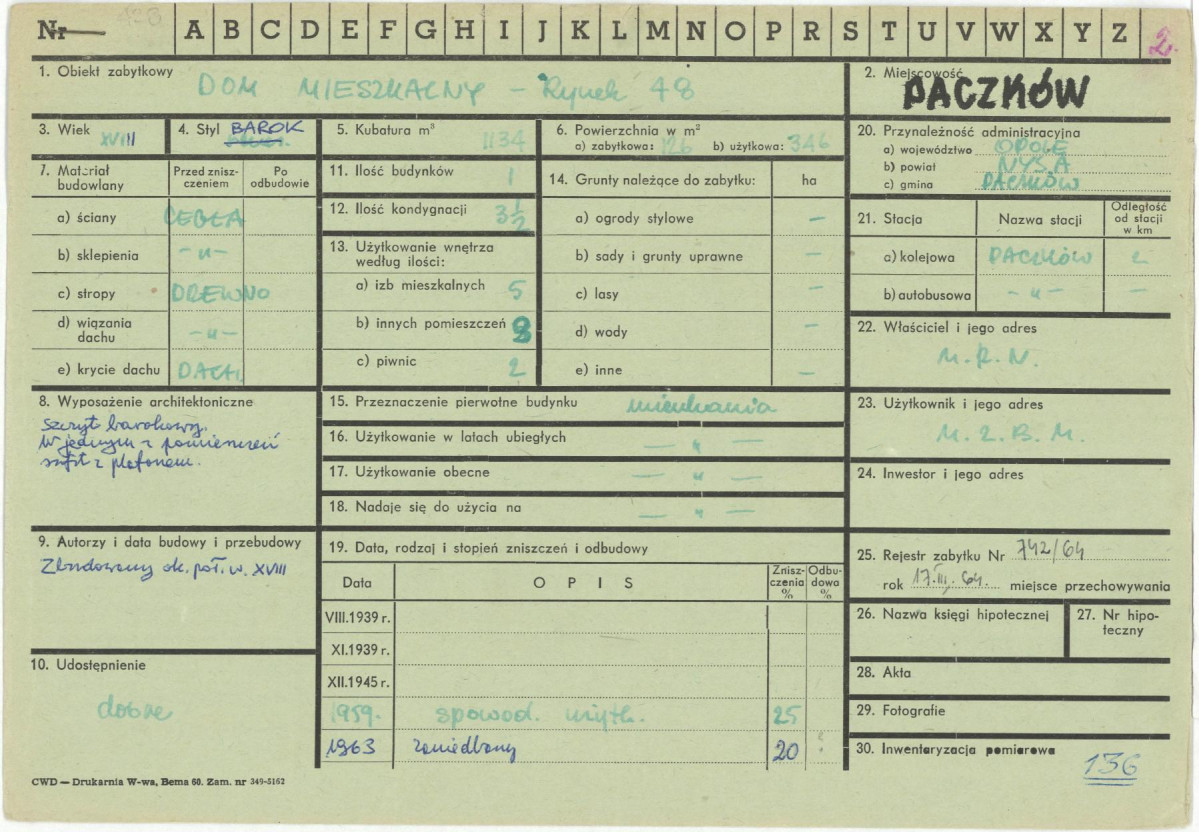 Nr A B C D E F G H I J K L M N O P R S T U V W X Y Z 2.
1. Obiekt zabytkowy DOM MIESZKALNY – Rynek 48
2. Miejscowość PACZKÓW
3. Wiek XVIII
4. Styl BAROK
5. Kubatura m³ 1134
6. Powierzchnia w m²
a) zabytkowa: 126 b) użytkowa: 346
7. Materiał budowlany
Przed zniszczeniem
Po odbudowie
a) ściany CEGŁA
b) sklepienia –„–
c) stropy DREWNO
d) wiązania dachu –„–
e) krycie dachu DACH.
8. Wyposażenie architektoniczne
Szczyt barokowy.
W jednym z pomieszczeń
sufit z plafonem.
9. Autorzy i data budowy i przebudowy
Zbudowany ok. poł. w. XVIII
10. Udostępnienie
dobre
11. Ilość budynków 1
12. Ilość kondygnacji 3 1/2
13. Użytkowanie wnętrza
według ilości:
a) izb mieszkalnych 5
b) innych pomieszczeń 8
c) piwnic 2
14. Grunty należące do zabytku: ha
a) ogrody stylowe –
b) sady i grunty uprawne –
c) lasy –
d) wody –
e) inne –
15. Przeznaczenie pierwotne budynku mieszkania
16. Użytkowanie w latach ubiegłych — „ —
17. Użytkowanie obecne — „ —
18. Nadaje się do użycia na — „ —
19. Data, rodzaj i stopień zniszczeń i odbudowy
Data OPIS Zniszczenia % Odbudowa %
VIII.1939 r.
XI.1939 r.
XII.1945 r.
1959. spowod. użytk. 25
1963 zaniedbany 20
20. Przynależność administracyjna
a) województwo OPOLE
b) powiat NYSA
c) gmina PACZKÓW
21. Stacja Nazwa stacji Odległość od stacji w km
a) kolejowa PACZKÓW 2
b) autobusowa –„– –
22. Właściciel i jego adres
M.R.N.
23. Użytkownik i jego adres
M.Z.B.M.
24. Inwestor i jego adres
25. Rejestr zabytku Nr 742/64
rok 17.III.64. miejsce przechowywania
26. Nazwa księgi hipotecznej
27. Nr hipoteczny
28. Akta
29. Fotografie
30. Inwentaryzacja pomiarowa
136
CWD — Drukarnia W-wa, Bema 60. Zam. nr 349-5162